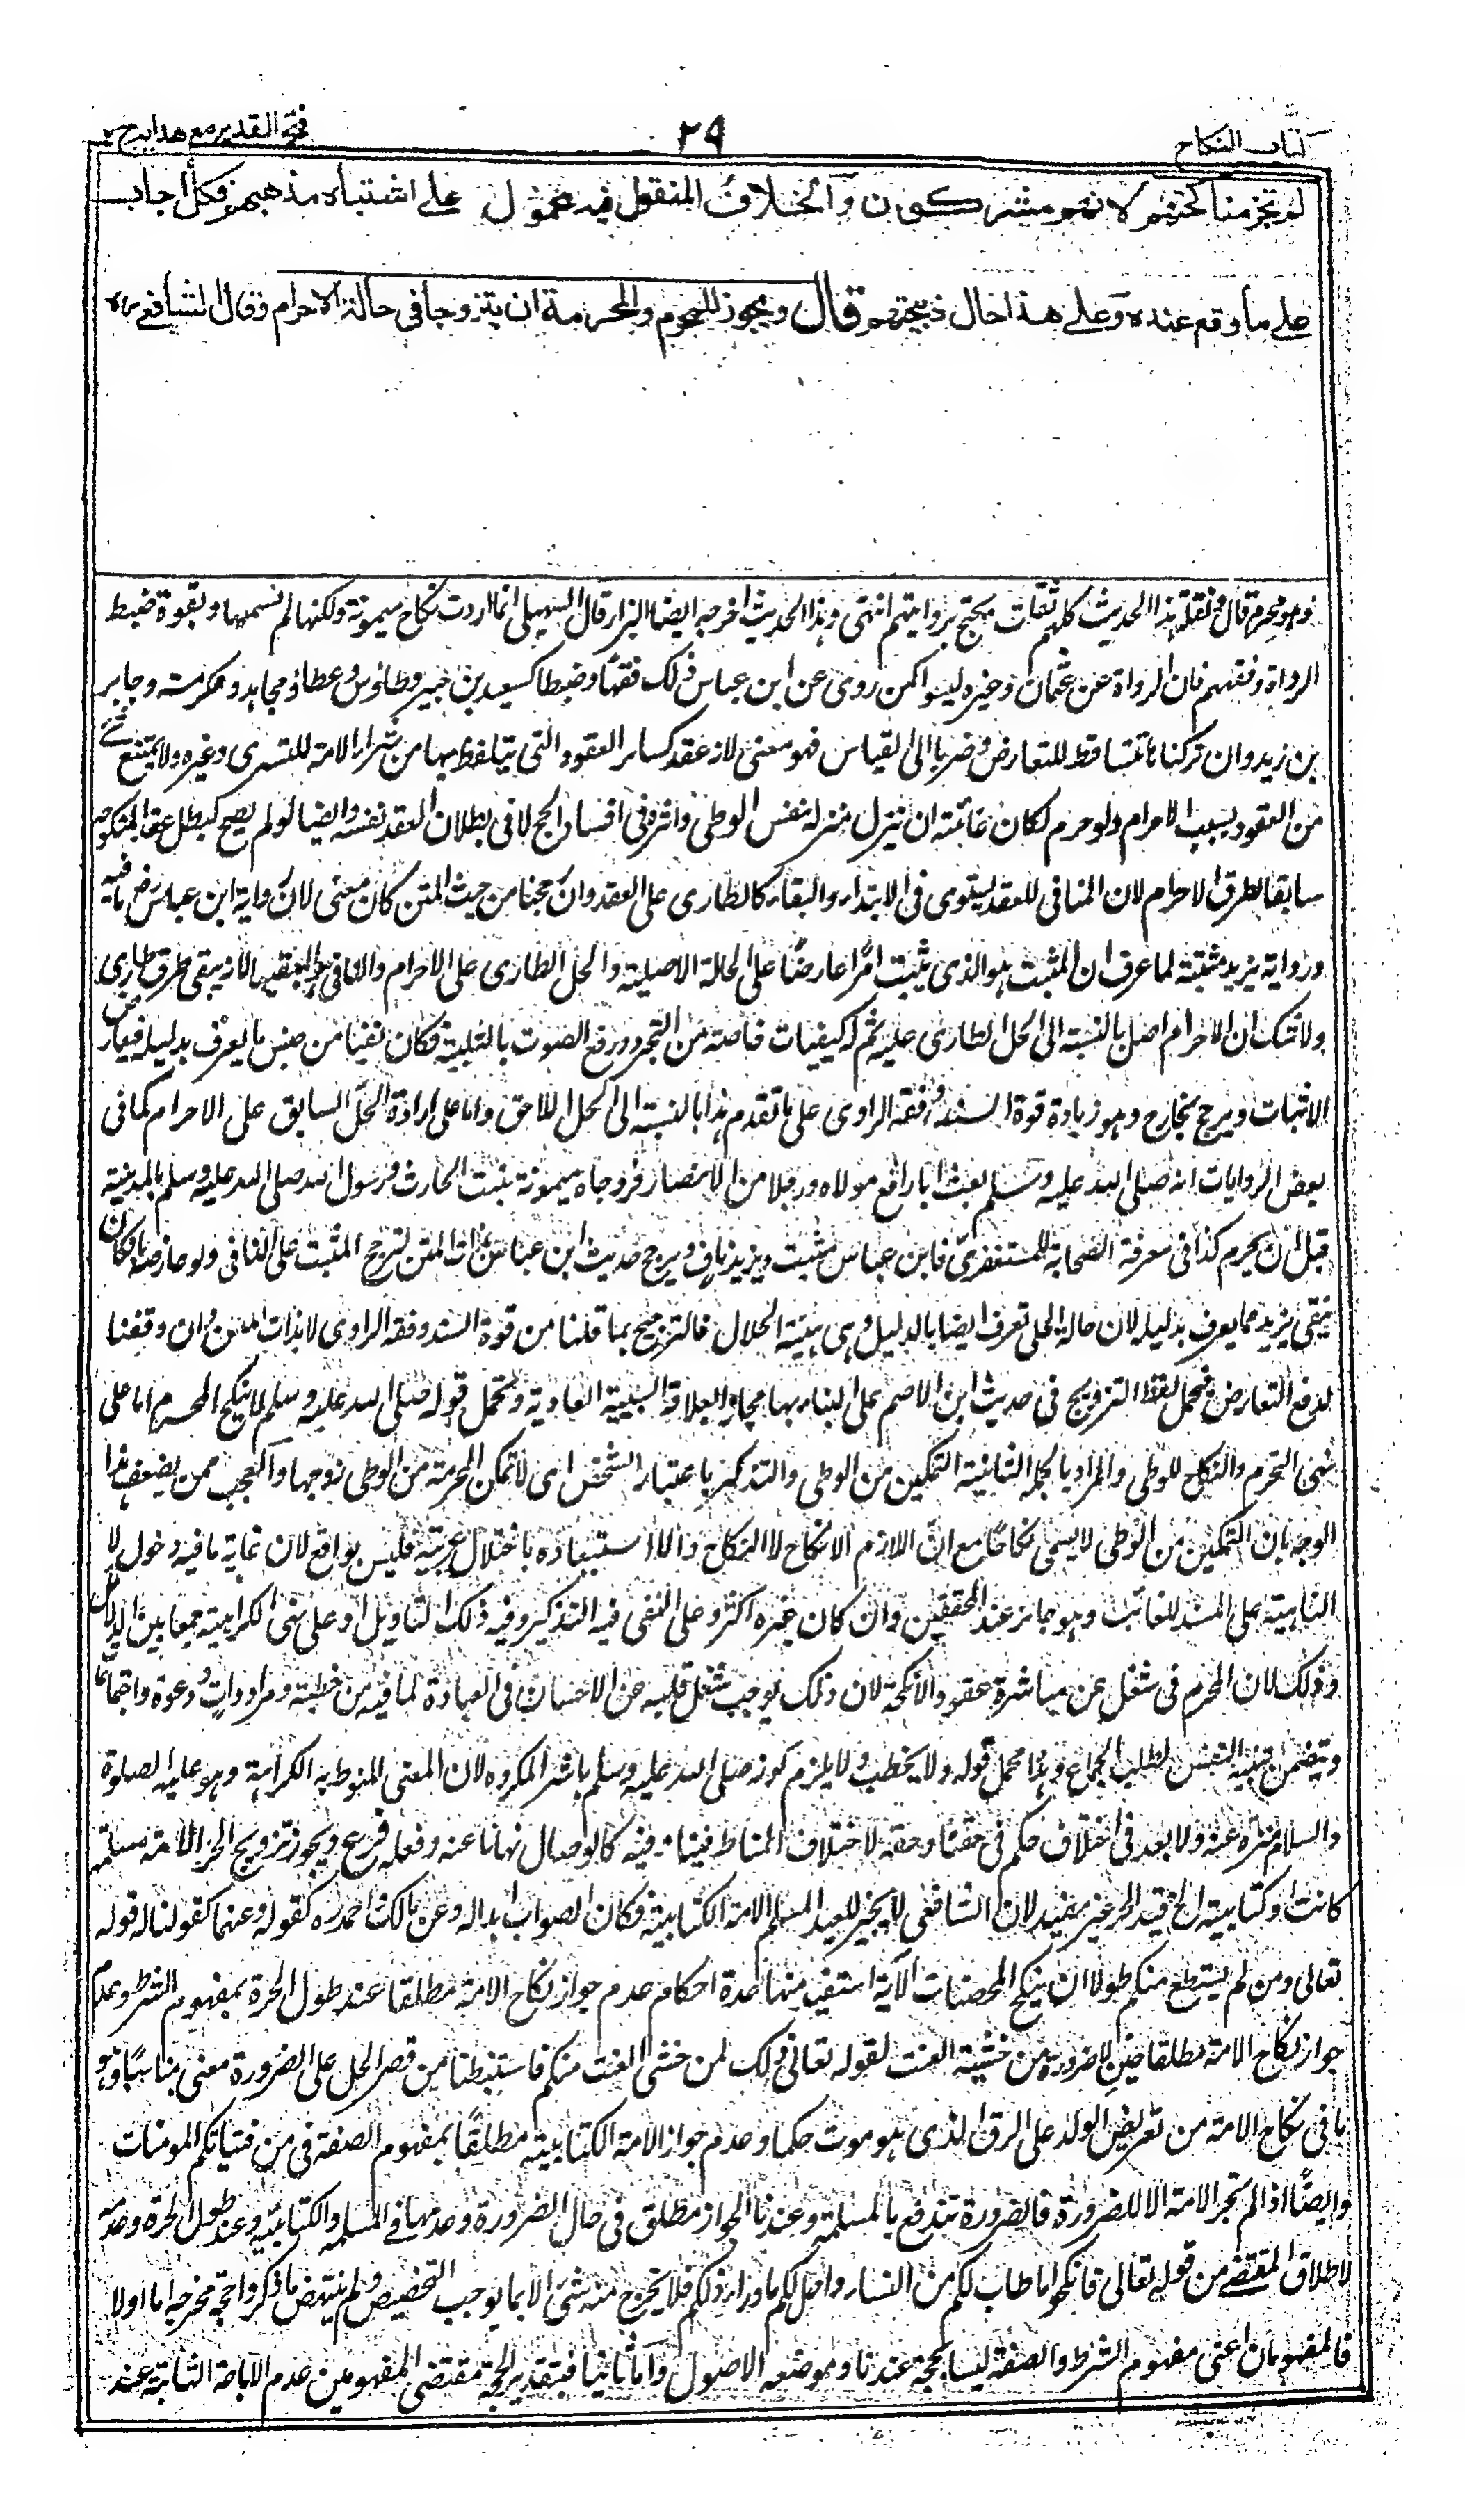 كتاب النكاح
٢٩
فتح القدير مع هدايہ ج ٢
لم تجز مناكحتهم لانهم مشركون والخلاف المنقول فيه محمول على اشتباه مذهبهم فكل اجاب
على ما وقع عنده وعلى هذا حال ذبيحتهم قال ويجوز للمحرم والمحرمة ان يتزوجا في حالة الاحرام وقال الشافعي ره
وهو محرم قال ونقلة هذا الحديث كلهم ثقات يحتج برواتهم انتهى وهذا الحديث اخرجه ايضا البزار قال السهيلي انما اردت نكاح ميمونة ولكنها لم تسمها وبقوة ضبط
الرواة وفقههم فان الرواة عن عثمان وغيره ليسوا كمن روى عن ابن عباس ذلك فقها وضبطا كسعيد بن جبير وطاؤس وعطاء ومجاهد وعكرمة وجابر
بن زيد وان تركنا تساقط للتعارض وضربا الى القياس فهو معنى لانه عقد كسائر العقود التي يتلفظ بها من شراء الامة للتسري وغيره ولا يمتنع شي
من العقود بسبب الاحرام ولو حرم لكان غايته ان ينزل منزلة نفس الوطي واثره في افساد الحج لا في بطلان العقد نفسه وايضا لو لم يصح لبطل عقد المنكوحة
سابقا لطرو الاحرام لان المنافي للعقد يستوي في الابتداء والبقاء كالطاري على العقد وان رجحنا من حيث المتن كان معنى لان رواية ابن عباس رض نافية
ورواية يزيد مثبتة لما عرف ان المثبت هو الذي يثبت امرا عارضا على الحالة الاصلية والحل الطاري على الاحرام والنافي هو المبقيها لانه ينفي طرو طاري
ولا شك ان الاحرام اصل بالنسبة الى الحل الطاري عليه ثم له كيفيات خاصة من التجرد ورفع الصوت بالتلبية فكان نفيا من جنس ما يعرف بدليله فيعارض
الاثبات ويرجح بخارج وهو زيادة قوة السند وفقه الراوي على ما تقدم هذا بالنسبة الى الحل اللاحق واما على ارادة الحل السابق على الاحرام كما في
بعض الروايات انه صلى الله عليه وسلم بعث ابا رافع مولاه ورجلا من الانصار فزوجاه ميمونة بنت الحارث ورسول الله صلى الله عليه وسلم بالمدينة
قبل ان يحرم كذا في معرفة الصحابة للمستغفري فابن عباس مثبت ويزيد ناف ويرجح حديث ابن عباس بذات المتن لترجح المثبت على النافي ولو عارضه بان كان
نفي يزيد مما يعرف بدليله لان حالة الحل تعرف ايضا بالدليل وهي هيئة الحلال فالترجيح بما قلنا من قوة السند وفقه الراوي لا بذات المتن وان وفقنا
لدفع التعارض فيحمل لفظ التزويج في حديث ابن الاصم على البناء بها مجازا بعلاقة السببية العادية ويحمل قوله صلى الله عليه وسلم لا ينكح المحرم اما على
نهي التحريم والنكاح للوطي والمراد بالجملة الثانية التمكين من الوطي والتذكير باعتبار الشخص اي لا تمكن المحرمة من الوطي زوجها والعجب ممن يضعف هذا
الوجه بان التمكين من الوطي لا يسمى نكاحا مع ان اللازم الانكاح لا النكاح واما استبعاده باختلال عربيته فليس بواقع لان غاية ما فيه دخول لا
الناهية على المسند للغائب وهو جائز عند المحققين وان كان غيره اكثر وعلى النفي فيه التذكير وفيه ذلك التاويل او على نهي الكراهية جمعا بين الدلائل
وذلك لان المحرم في شغل عن مباشرة عقود الانكحة لان ذلك يوجب شغل قلبه عن الاحسان في العبادة لما فيه من خطبة ومراودات ودعوة واجتماعا
ويتضمن تنبيه النفس لطلب الجماع وهذا محمل قوله ولا يخطب ولا يلزم كونه صلى الله عليه وسلم باشر المكروه لان المعنى المنوط به الكراهة وهو عليه الصلوة
والسلام منزه عنه ولا بعد في اختلاف حكم في حقنا وحقه لاختلاف المناط فينا وفيه كالوصال نهانا عنه وفعله فرع ويجوز تزويج الحر الامة مسلمة
كانت او كتابية الخ قيد الحر غير مفيد لان الشافعي لا يجيز للعبد المسلم الامة الكتابية فكان الصواب ابداله وعن مالك احمد ره كقوله وعنهما كقولنا له قوله
تعالى ومن لم يستطع منكم طولا ان ينكح المحصنات الآية استفيد منها عدة احكام عدم جواز نكاح الامة مطلقا عند طول الحرة بمفهوم الشرط وعدم
جواز نكاح الامة مطلقا حين لا ضرورة من خشية العنت لقوله تعالى ذلك لمن خشي العنت منكم فاستنبطنا من قصر الحل على الضرورة معنى مناسبا وهو
ما في نكاح الامة من تعريض الولد على الرق الذي هو موت حكما وعدم جواز الامة الكتابية مطلقا بمفهوم الصفة في من فتياتكم المومنات
وايضا اذا لم تجز الامة الا للضرورة فالضرورة تندفع بالمسلمة وعندنا الجواز مطلق في حال الضرورة وعدمها في المسلمة والكتابية وعند طول الحرة وعدمه
لاطلاق المقتضى من قوله تعالى فانكحوا ما طاب لكم من النساء واحل لكم ما وراء ذلكم فلا يخرج منه شي الا بما يوجب التخصيص ولم ينتهض ما ذكروا حجة مخرجة اما اولا
فالمفهومان اعنى مفهوم الشرط والصفة ليسا بحجة عندنا وموضعه الاصول واما ثانيا فبتقدير الحجة مقتضى المفهومين عدم الاباحة الثابتة عند